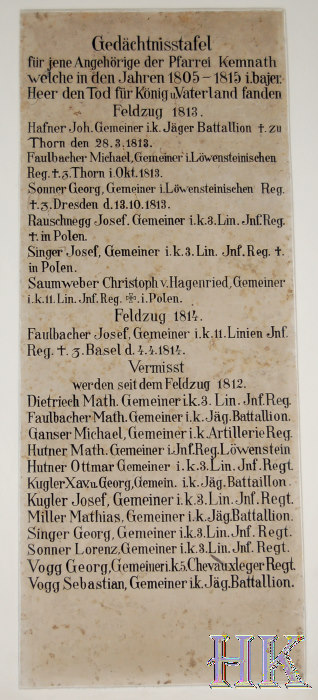 Gedächtnisstafel
für jene Angehörige der Pfarrei Kemnath
welche in den Jahren 1805 – 1815 i. bajer.
Heer den Tod für König u. Vaterland fanden
Feldzug 1813.
Hafner Joh. Gemeiner i.k. Jäger Battallion †. zu
Thorn den 28.3.1813.
Faulbacher Michael, Gemeiner i. Löwensteinischen
Reg. †. z. Thorn i. Okt. 1813.
Sonner Georg, Gemeiner i. Löwensteinischen Reg.
†. z. Dresden d. 13.10.1813.
Rauschnegg Josef. Gemeiner i.k.3. Lin. Jnf. Reg.
†. in Polen.
Singer Josef, Gemeiner i.k.3. Lin. Jnf. Reg. †.
in Polen.
Saumweber Christoph v. Hagenried, Gemeiner
i.k.11. Lin. Jnf. Reg. ✠. i. Polen.
Feldzug 1814.
Faulbacher Josef, Gemeiner i.k.11. Linien Jnf.
Reg. †. z. Basel d. 4.4.1814.
Vermisst
werden seit dem Feldzug 1812.
Dietriech Math. Gemeiner i.k.3. Lin. Jnf. Reg.
Faulbacher Math. Gemeiner i.k. Jäg. Battallion.
Ganser Michael, Gemeiner i.k. Artillerie Reg.
Hutner Math. Gemeiner i. Jnf. Reg. Löwenstein
Hutner Ottmar Gemeiner i.k.3. Lin. Jnf. Regt.
Kugler Xav. u. Georg, Gemein. i.k. Jäg. Battaillon.
Kugler Josef, Gemeiner i.k.3. Lin. Jnf. Regt.
Miller Mathias, Gemeiner i.k. Jäg. Battallion.
Singer Georg, Gemeiner i.k.3. Lin. Jnf. Regt.
Sonner Lorenz, Gemeiner i.k.3. Lin. Jnf. Regt.
Vogg Georg, Gemeiner i.k.5. Chevauxleger Regt.
Vogg Sebastian, Gemeiner i.k. Jäg. Battallion.
HK